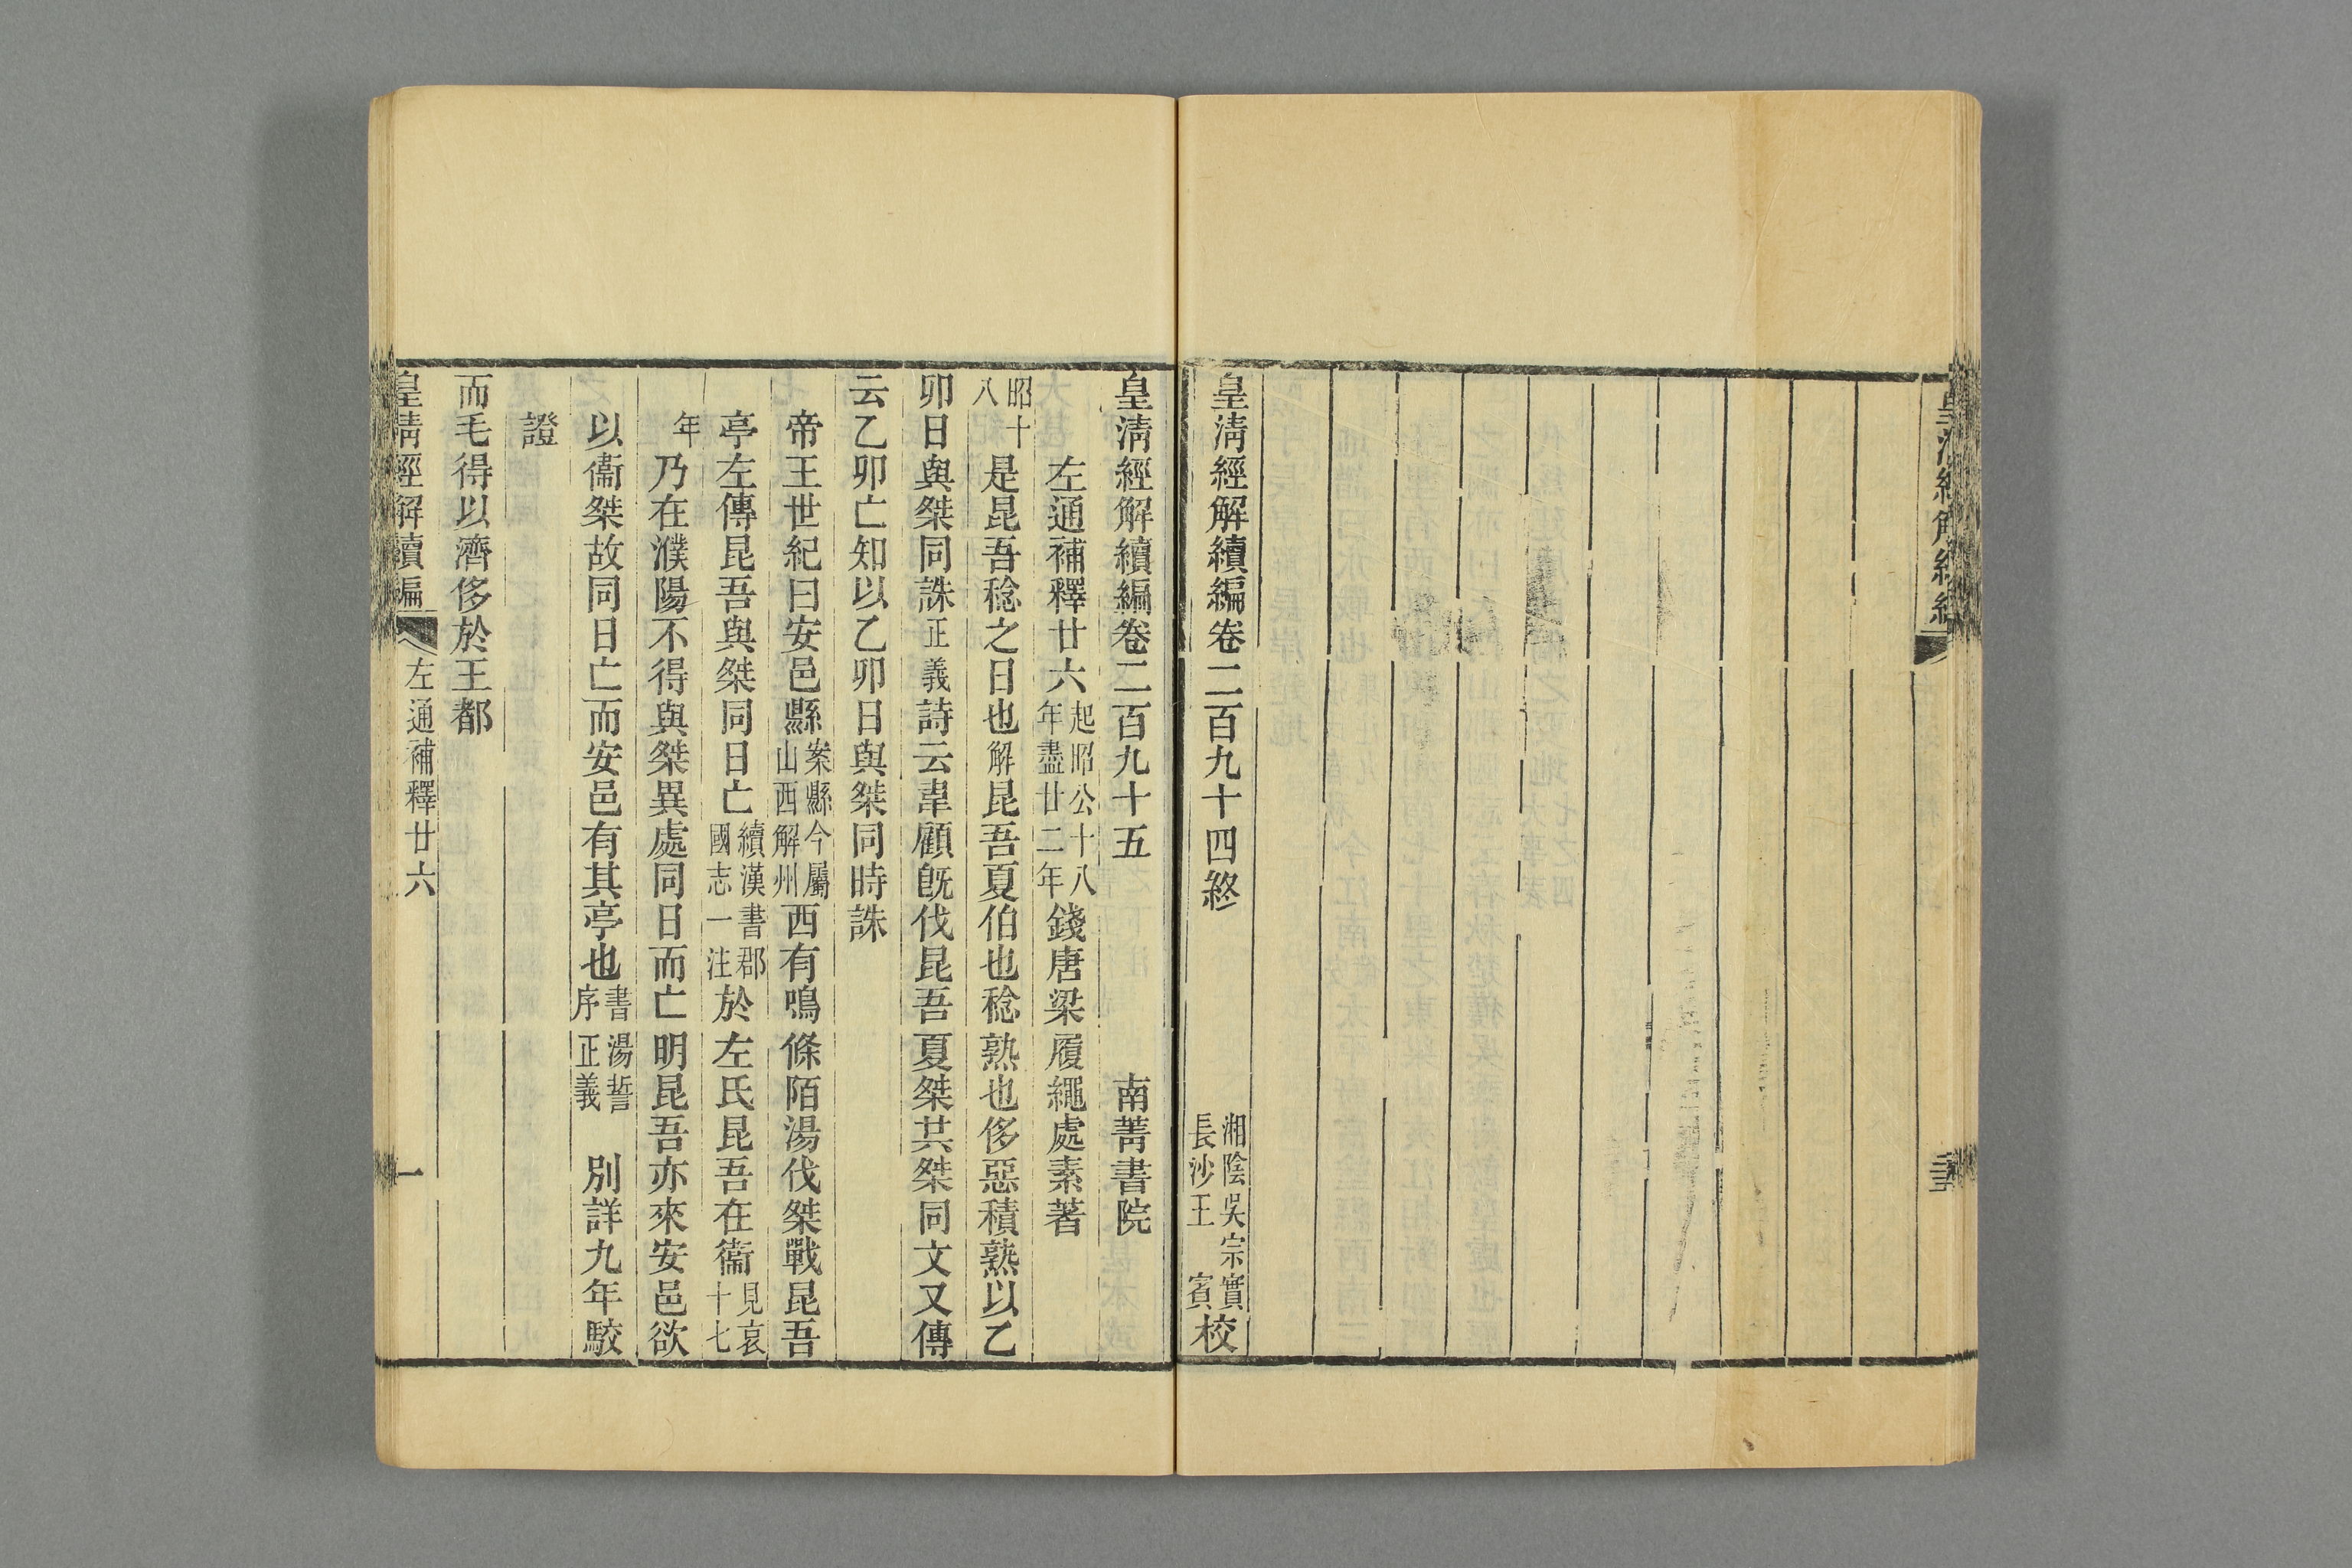 皇清經解續編卷二百九十四終 湘陰吳宗實長沙王賓校
皇清經解續編卷二百九十五 南菁書院
左通補釋廿六 起昭公十八年盡廿二年 錢唐梁履繩處素著
昭十八 是昆吾稔之日也解昆吾夏伯也稔熟也侈惡積熟以乙
卯日與桀同誅正義詩云韋顧旣伐昆吾夏桀共桀同文又傳
云乙卯亡知以乙卯日與桀同時誅
帝王世紀曰安邑縣案縣今屬山西解州西有鳴條陌湯伐桀戰昆吾
亭左傳昆吾與桀同日亡續漢書郡國志一注於左氏昆吾在衞見哀十七
年乃在濮陽不得與桀異處同日而亡明昆吾亦來安邑欲
以衞桀故同日亡而安邑有其亭也書湯誓序正義 別詳九年駮
證
而毛得以濟侈於王都
皇清經解續編 左通補釋廿六 一